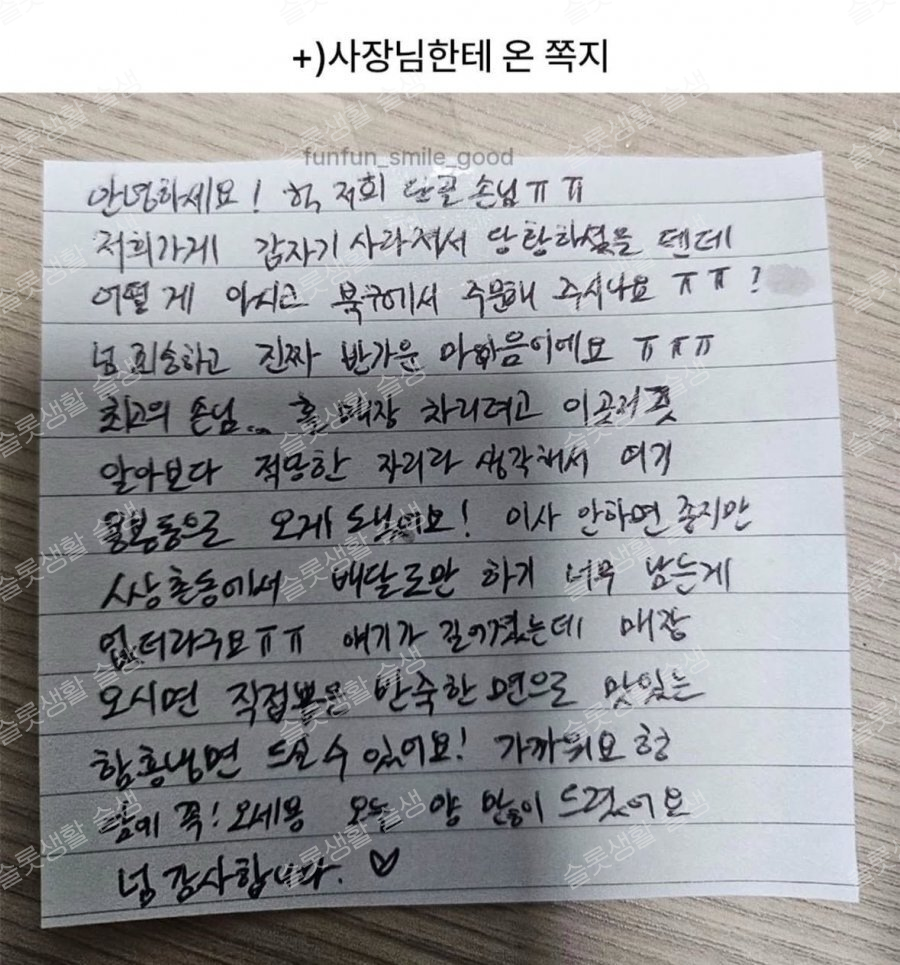 +)사장님한테 온 쪽지
funfun_smile_good
안녕하세요! 헉 저희 단골 손님ㅠㅠ
저희가게 갑자기 사라져서 당황하셨을 텐데
어떻게 아시고 북구에서 주문해 주시나요 ㅠㅠ?
넘 죄송하고 진짜 반가운 마음이에요 ㅠㅠㅠ
최고의 손님... 홀 매장 차리려고 이곳저곳
알아보다 적당한 자리라 생각해서 여기
월봉동으로 오게 됐어요! 이사 안하면 좋지만
배달로만 하기 너무 남는게
없더라구요ㅠㅠ 얘기가 길어졌는데 매장
오시면 직접 반죽한 면으로 맛있는
함흥냉면 드실 수 있어요! 가까워요
꼭! 오세용 오늘 양 많이 드렸어요
넘 감사합니다. ♡
슬롯생활 슬생